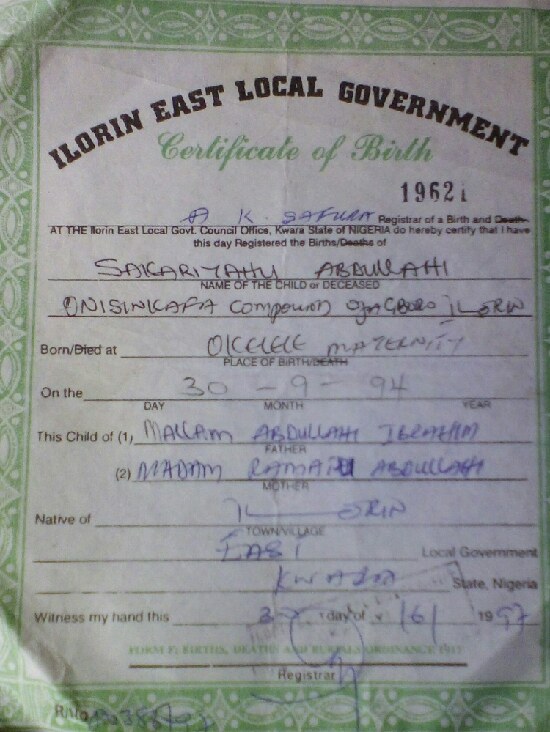 ILORIN EAST LOCAL GOVERNMENT
Certificate of Birth
19621
A K. SAFURA Registrar of a Birth and Death
AT THE Ilorin East Local Govt. Council Office, Kwara State of NIGERIA do hereby certify that I have
this day Registered the Births/Deaths of
SAKARIYAHU ABDULLAHI
NAME OF THE CHILD or DECEASED
ONISINKAFA Compound OJAGBORO ILORIN
Born/Died at OKELELE MATERNITY
PLACE OF BIRTH/DEATH
On the 30 - 9 - 94
DAY MONTH YEAR
This Child of (1) MALLAM ABDULLAHI IBRAHIM
FATHER
(2) MADAM RAMATU ABDULLAHI
MOTHER
Native of ILORIN
TOWN/VILLAGE
EAST Local Government
KWARA State, Nigeria
Witness my hand this day of 161 1997
FORM F: BIRTHS, DEATHS AND BURIALS ORDINANCE 1917
Registrar
R.No